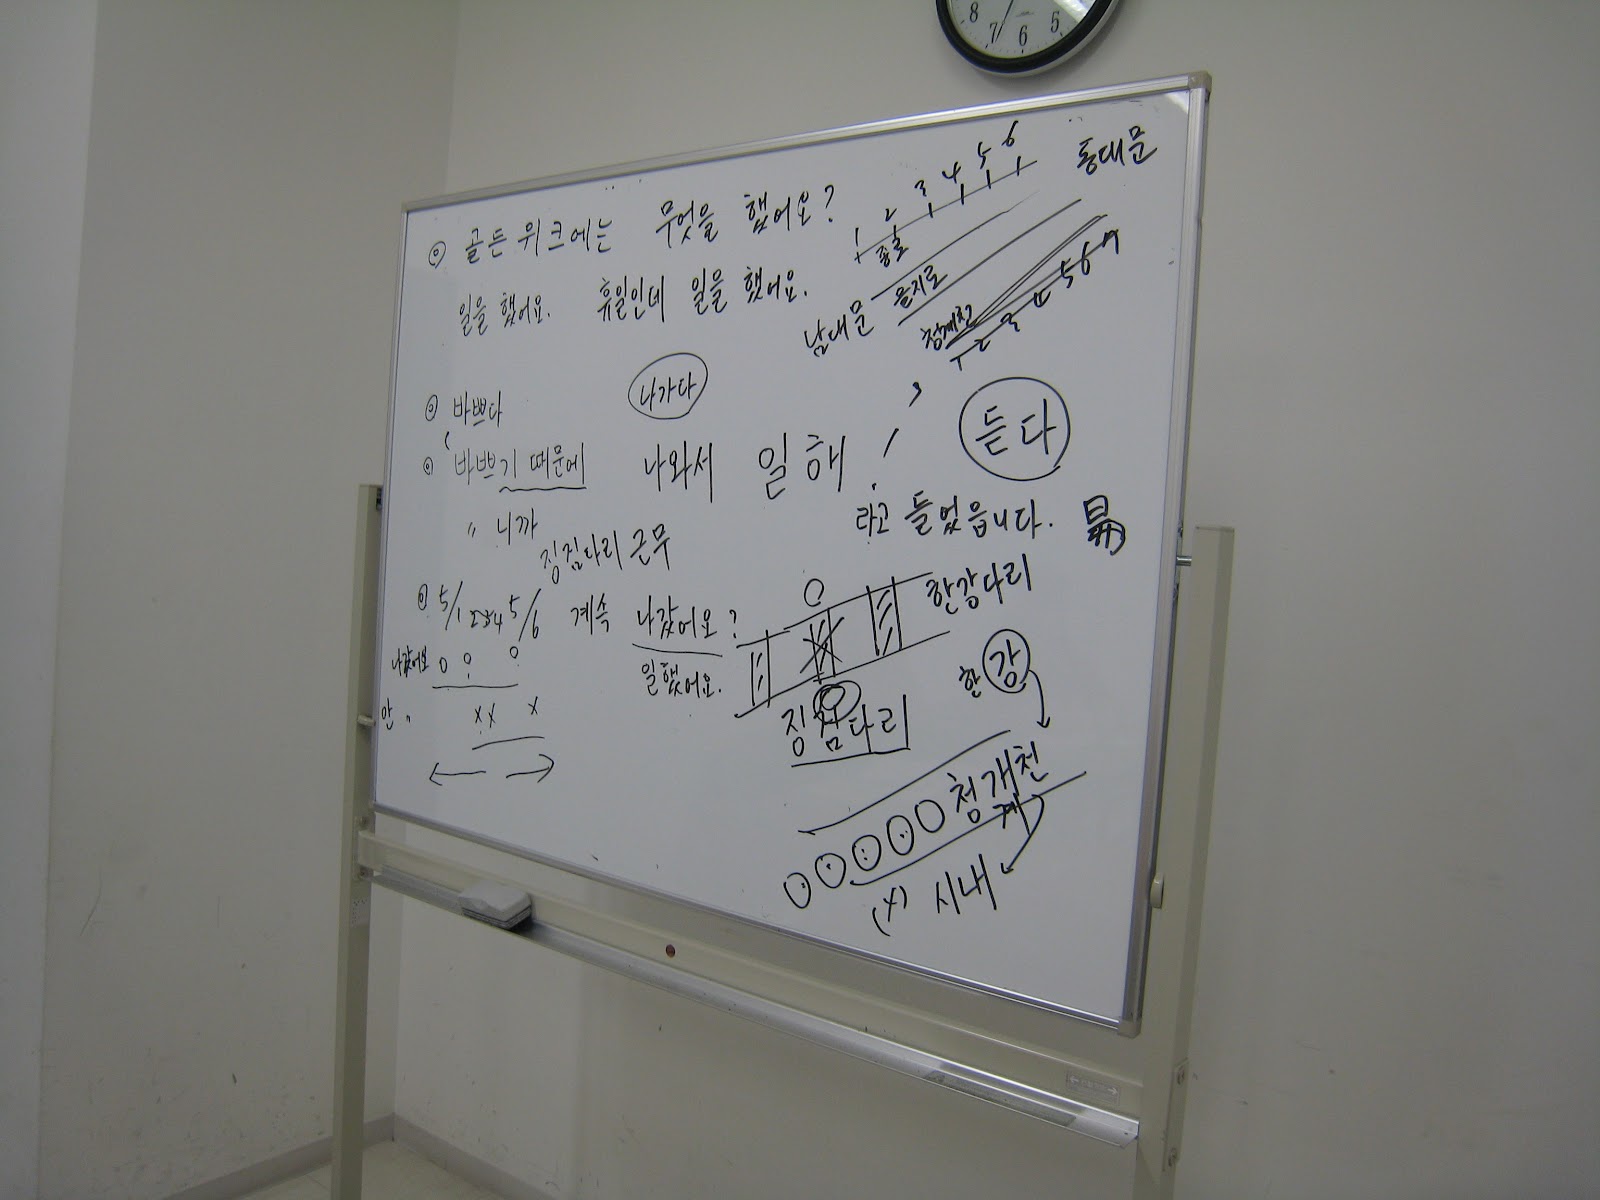 8 7 6 5
◎ 골든 위크에는 무엇을 했어요?
일을 했어요. 휴일인데 일을 했어요.
1 2 3 4 5 6
종로
동대문
을지로
남대문
청계천
1 2 3 4 5 6 7
나가다
◎ 바쁘다
◎ 바쁘기 때문에 나와서 일해!
듣다
" 니까
라고 들었읍니다.
징검다리 근무
◎ 5/1 2 3 4 5/6 계속 나갔어요?
나갔어요 O O O
일했어요.
안 " x x x
한강다리
징검다리
한강
청개천
계
(x) 시내